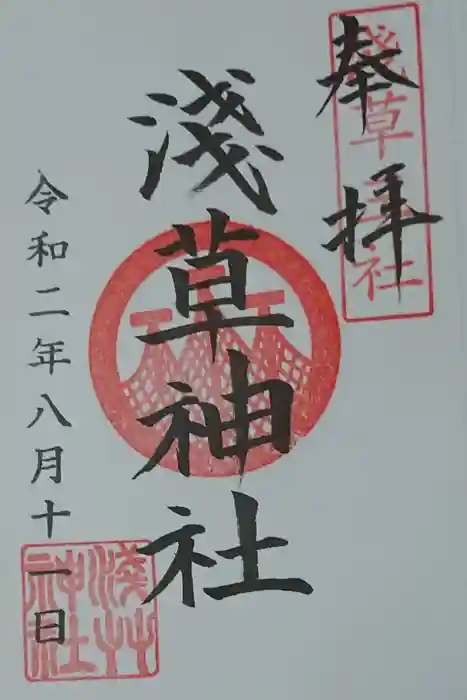 奉拝
淺草神社
淺草神社
令和二年八月十一日
淺草神社